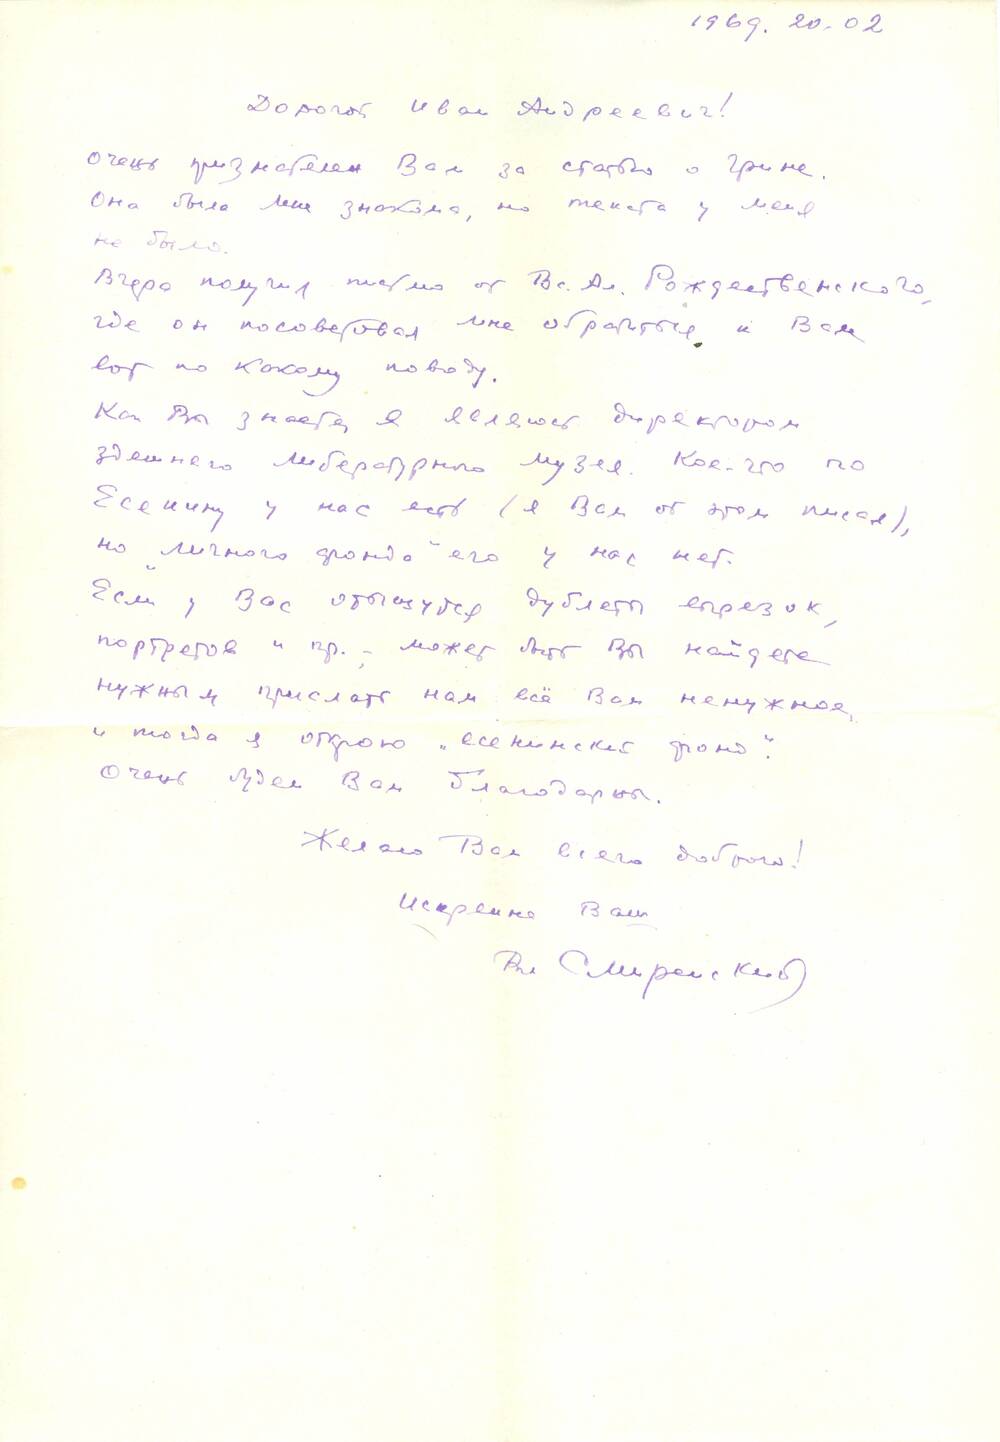 1969. 20.02
Дорогой Иван Андреевич!
Очень признателен Вам за статью о Грине.
Она была мне знакома, но текста у меня
не было.
Вчера получил письмо от Вс. Ал. Рождественского,
где он посоветовал мне обратиться к Вам
вот по какому поводу.
Как Вы знаете, я являюсь директором
здешнего литературного музея. Кое-что по
Есенину у нас есть (я Вам об этом писал),
но „личного фонда" его у нас нет.
Если у Вас отыщутся дублеты вырезок,
портретов и пр. – может быть Вы найдете
нужным прислать нам всё Вам ненужное,
и тогда я открою „есенинский фонд".
Очень будем Вам благодарны.
Желаю Вам всего доброго!
Искренно Ваш
Вл Смиренский